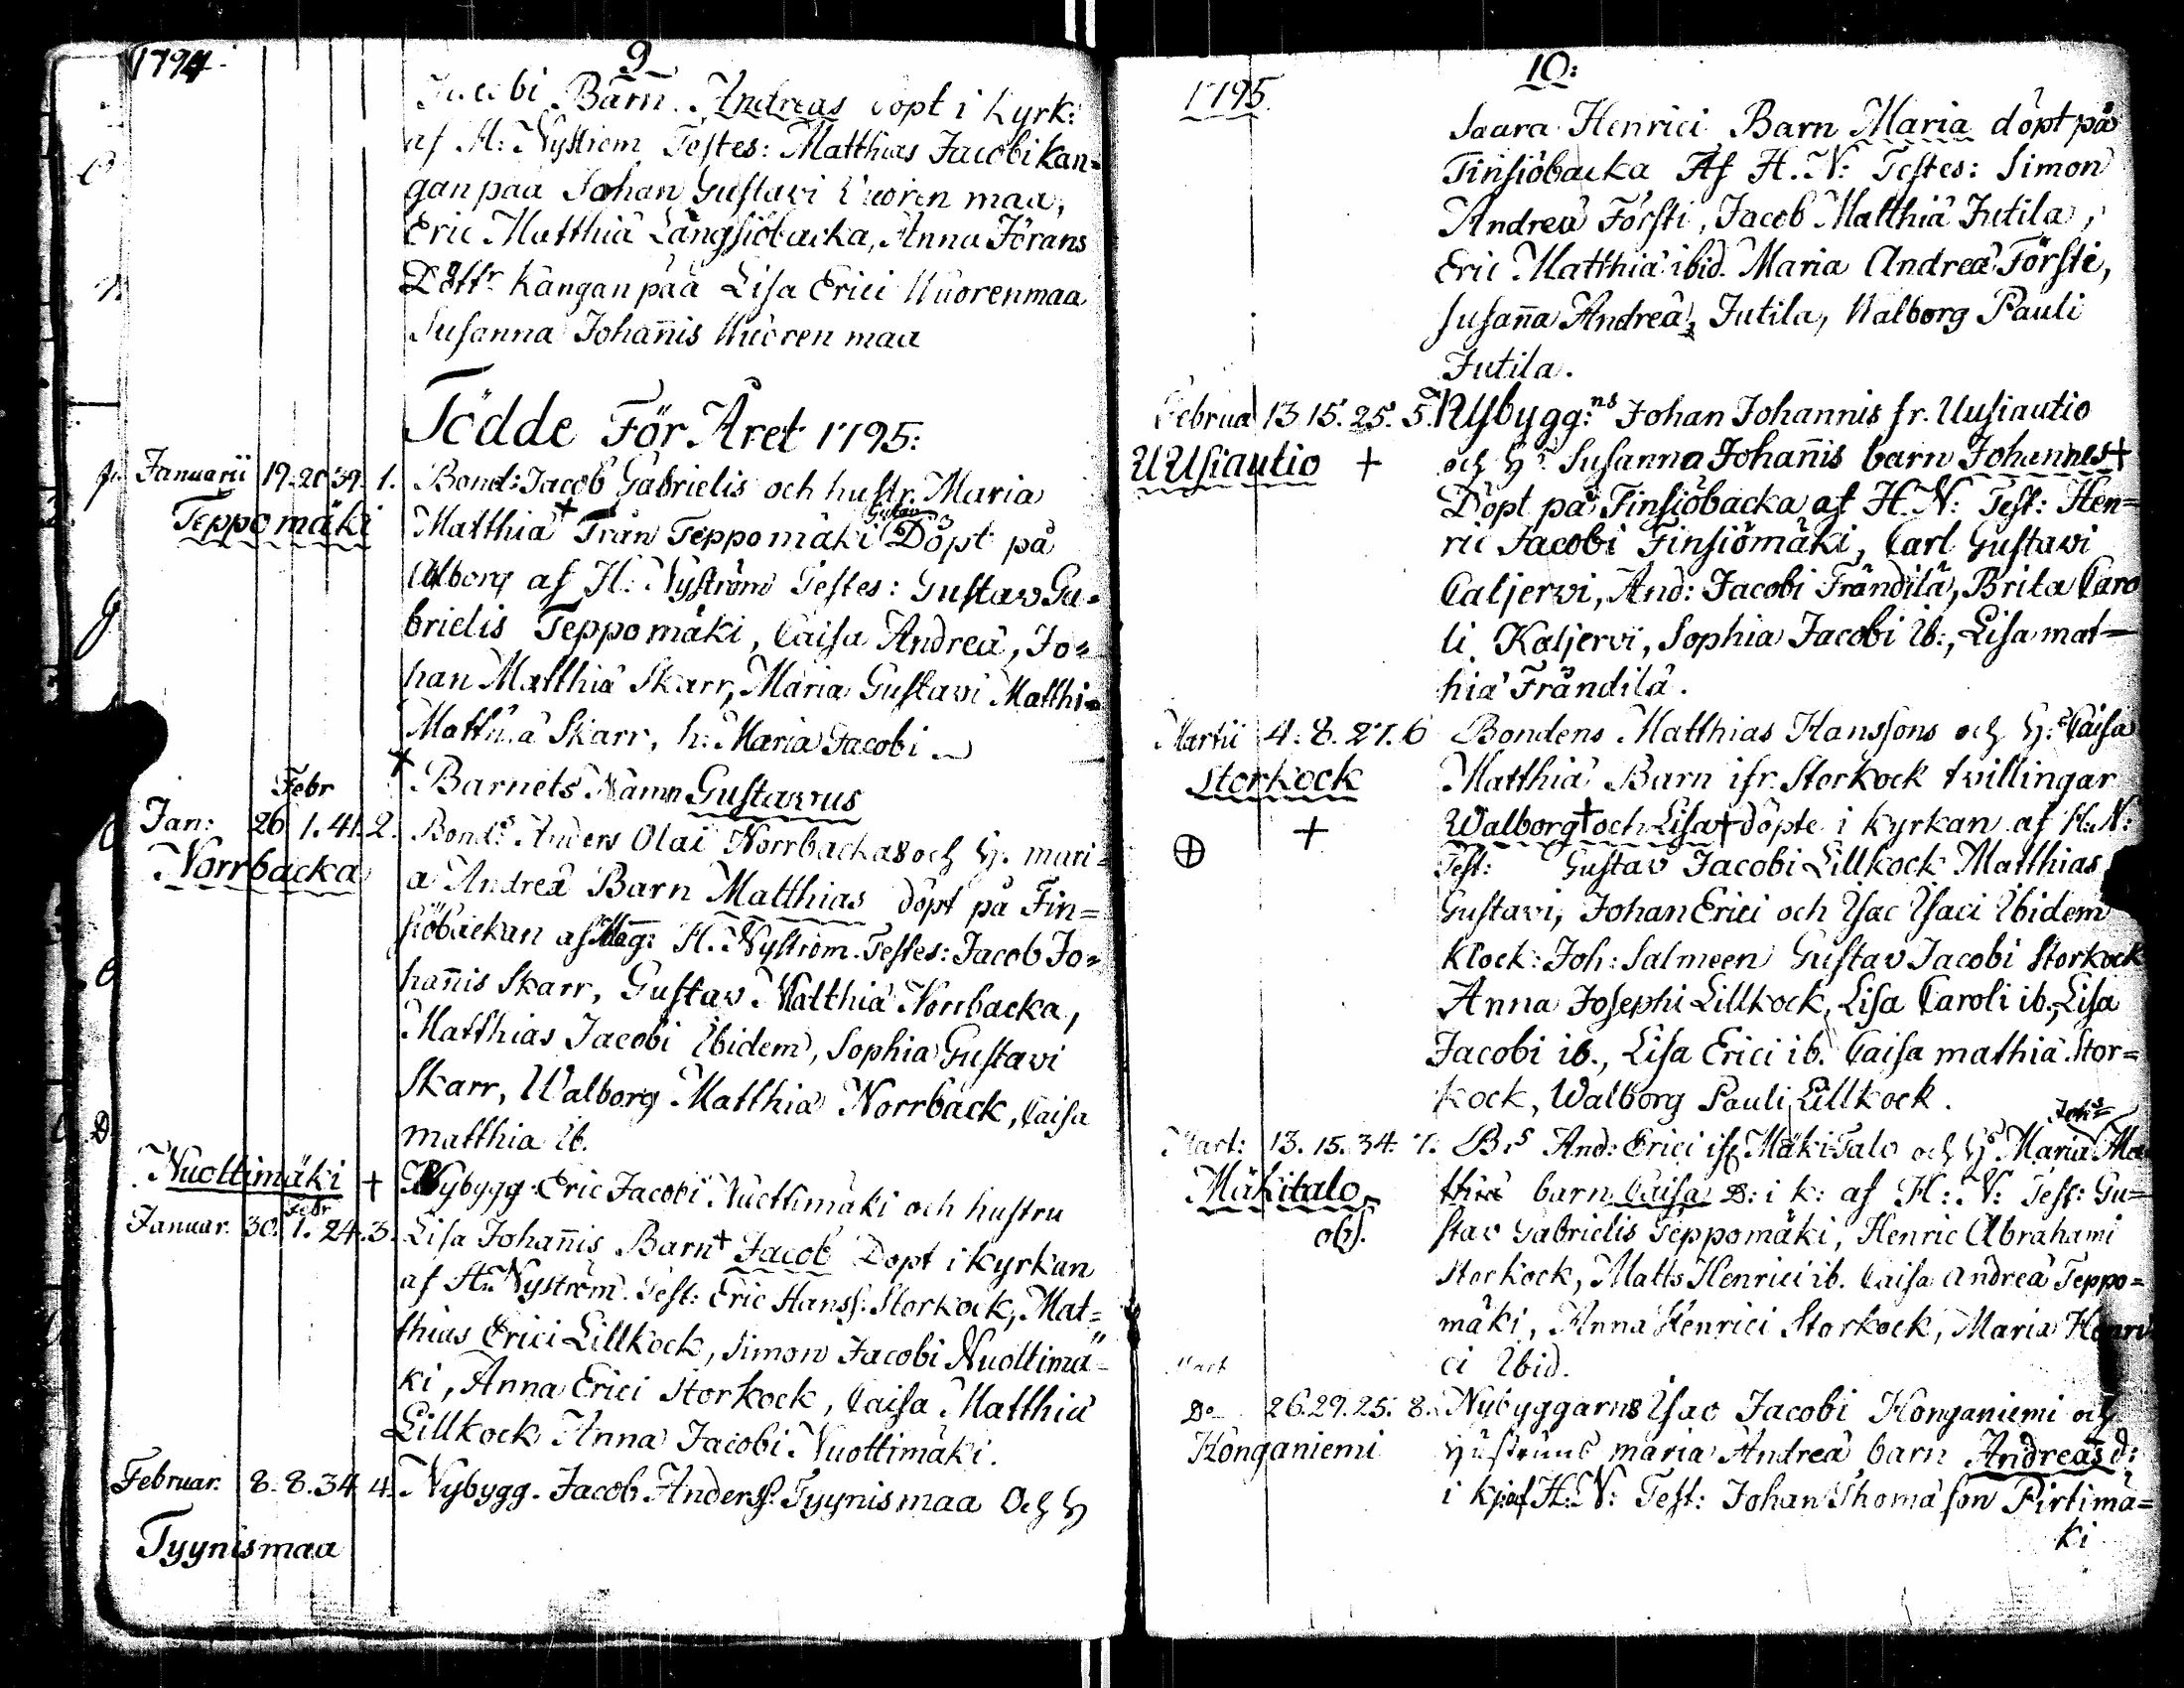 1794.
9
Jacobi Barn. Andreas döpt i Kyrk:
af H: Nyström Testes: Matthias Jacobi Kan=
gan paa Johan Gustavi Vuoren maa,
Eric Matthiä Långsiöbacka, Anna Jörans
Dottr Kangan pää Lisa Erici Wuorenmaa
Susanna Johan̄is Wuoren maa
Födde För Året 1795:
Januarii 19. 20 39. 1. Bond: Jacob Gabrielis och hustr. Maria
Teppomäki Matthiä + Från Teppomäki Gustav Döpt på
Alborg af H: Nyström Testes: Gustav Ga=
brielis Teppomäki, Caisa Andreä, Jo=
han Matthiä Skarr, Maria Gustavi Matthi=
Matthiä Skarr, h: Maria Jacobi
+ Barnets Namn Gustavus
Febr
Jan: 26 1. 41. 2. Bonds Anders Olai Norrbackas och H. mari=
Norrbacka a Andreä Barn Matthias döpt på Fin=
siöbackan af Mag: H. Nyström. Testes: Jacob Jo=
han̄is Skarr, Gustav Matthiä Norrbacka,
Matthias Jacobi Ibidem, Sophia Gustavi
Skarr, Walborg Matthiä Norrback, Caisa
matthia Ib.
Nuottimäki + Nybygg. Eric Jacobi Nuottimäki och hustru
Febr
Januar. 30. 1. 24. 3. Lisa Johan̄is Barn + Jacob Döpt i kyrkan
af H: Nyström. Test: Eric Hanss. Storkock, Mat=
thias Erici Lillkock, Simon Jacobi Nuottimä=
ki, Anna Erici Storkock, Caisa Matthiä
Lillkock Anna Jacobi Nuottimäki.
Februar. 8. 8. 34. 4. Nybygg. Jacob Anderss. Tyynismaa och H
Tyynismaa
1795.
10:
Saara Henrici Barn Maria döpt på
Finsiöbacka Af H. N: Testes: Simon
Andreä Försti, Jacob Matthiä Jutila,
Eric Matthiä ibid. Maria Andreä Försti,
Susan̄a Andreä, Jutila, Walborg Pauli
Jutila.
Februa 13. 15. 25. 5. Nybygg:ns Johan Johannis fr. Uusiautio
UUsiautio + och Hs Susanna Johan̄is barn Johannes +
Döpt på Finsiöbacka af H. N: Test: Hen=
ric Jacobi Finsiömäki, Carl Gustavi
Caljervi, And: Jacobi Frändilä, Brita Caro
li Kaljervi, Sophia Jacobi Ib:, Lisa mat=
hiä Frändilä.
Martii 4. 8. 27. 6 Bondens Matthias Hanssons och H: Caisa
Storkock Matthiä Barn ifr. Storkock tvillingar
+ Walborg + och Lisa + döpte i kyrkan af H: N:
Test: Gustav Jacobi Lillkock Matthias
Gustavi, Johan Erici och Isac Isaci Ibidem
Klock: Joh: Salmeen Gustav Jacobi Storkock
Anna Josephi Lillkock, Lisa Caroli ib., Lisa
Jacobi ib., Lisa Erici ib. Caisa mathiä Stor=
kock, Walborg Pauli Lillkock.
Johs
Mart: 13. 15. 34. 7. Bs And: Erici ifr Mäki Talo och Hs Maria Mat
Mäkitalo thiä barn Caisa D: i k: af H: N: Test: Gu=
obs. stav Gabrielis Teppomäki, Henric Abrahami
Storkock, Matts Henrici ib. Caisa Andreä Teppo=
mäki, Anna Henrici Storkock, Maria Henri
Mart ci Ibid.
Do 26. 29. 25. 8. Nybyggarns Isac Jacobi Honganiemi och
Honganiemi Hustruns maria Andreä barn Andreas d:
i k: af H: N: Test: Johan Thomäson Pirtimä=
ki